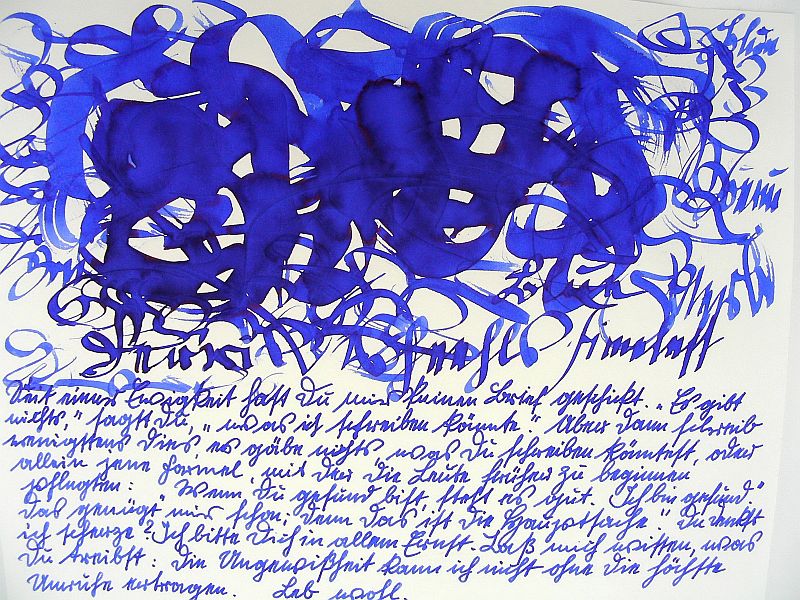 Seit einer Ewigkeit hast Du mir keinen Brief geschickt. „Es gibt
nichts," sagst Du, „was ich schreiben könnte." Aber dann schreib
wenigstens dies, es gäbe nichts, was Du schreiben könntest, oder
allein jene Formel, mit der die Leute früher zu beginnen
pflegten: "Wenn Du gesund bist, steht es gut. Ich bin gesund."
Das genügt mir schon; denn das ist die Hauptsache." Du denkst
ich scherze? Ich bitte Dich in allem Ernst. Laß mich wissen, was
Du treibst: die Ungewißheit kann ich nicht ohne die höchste
Unruhe ertragen. Leb wohl.